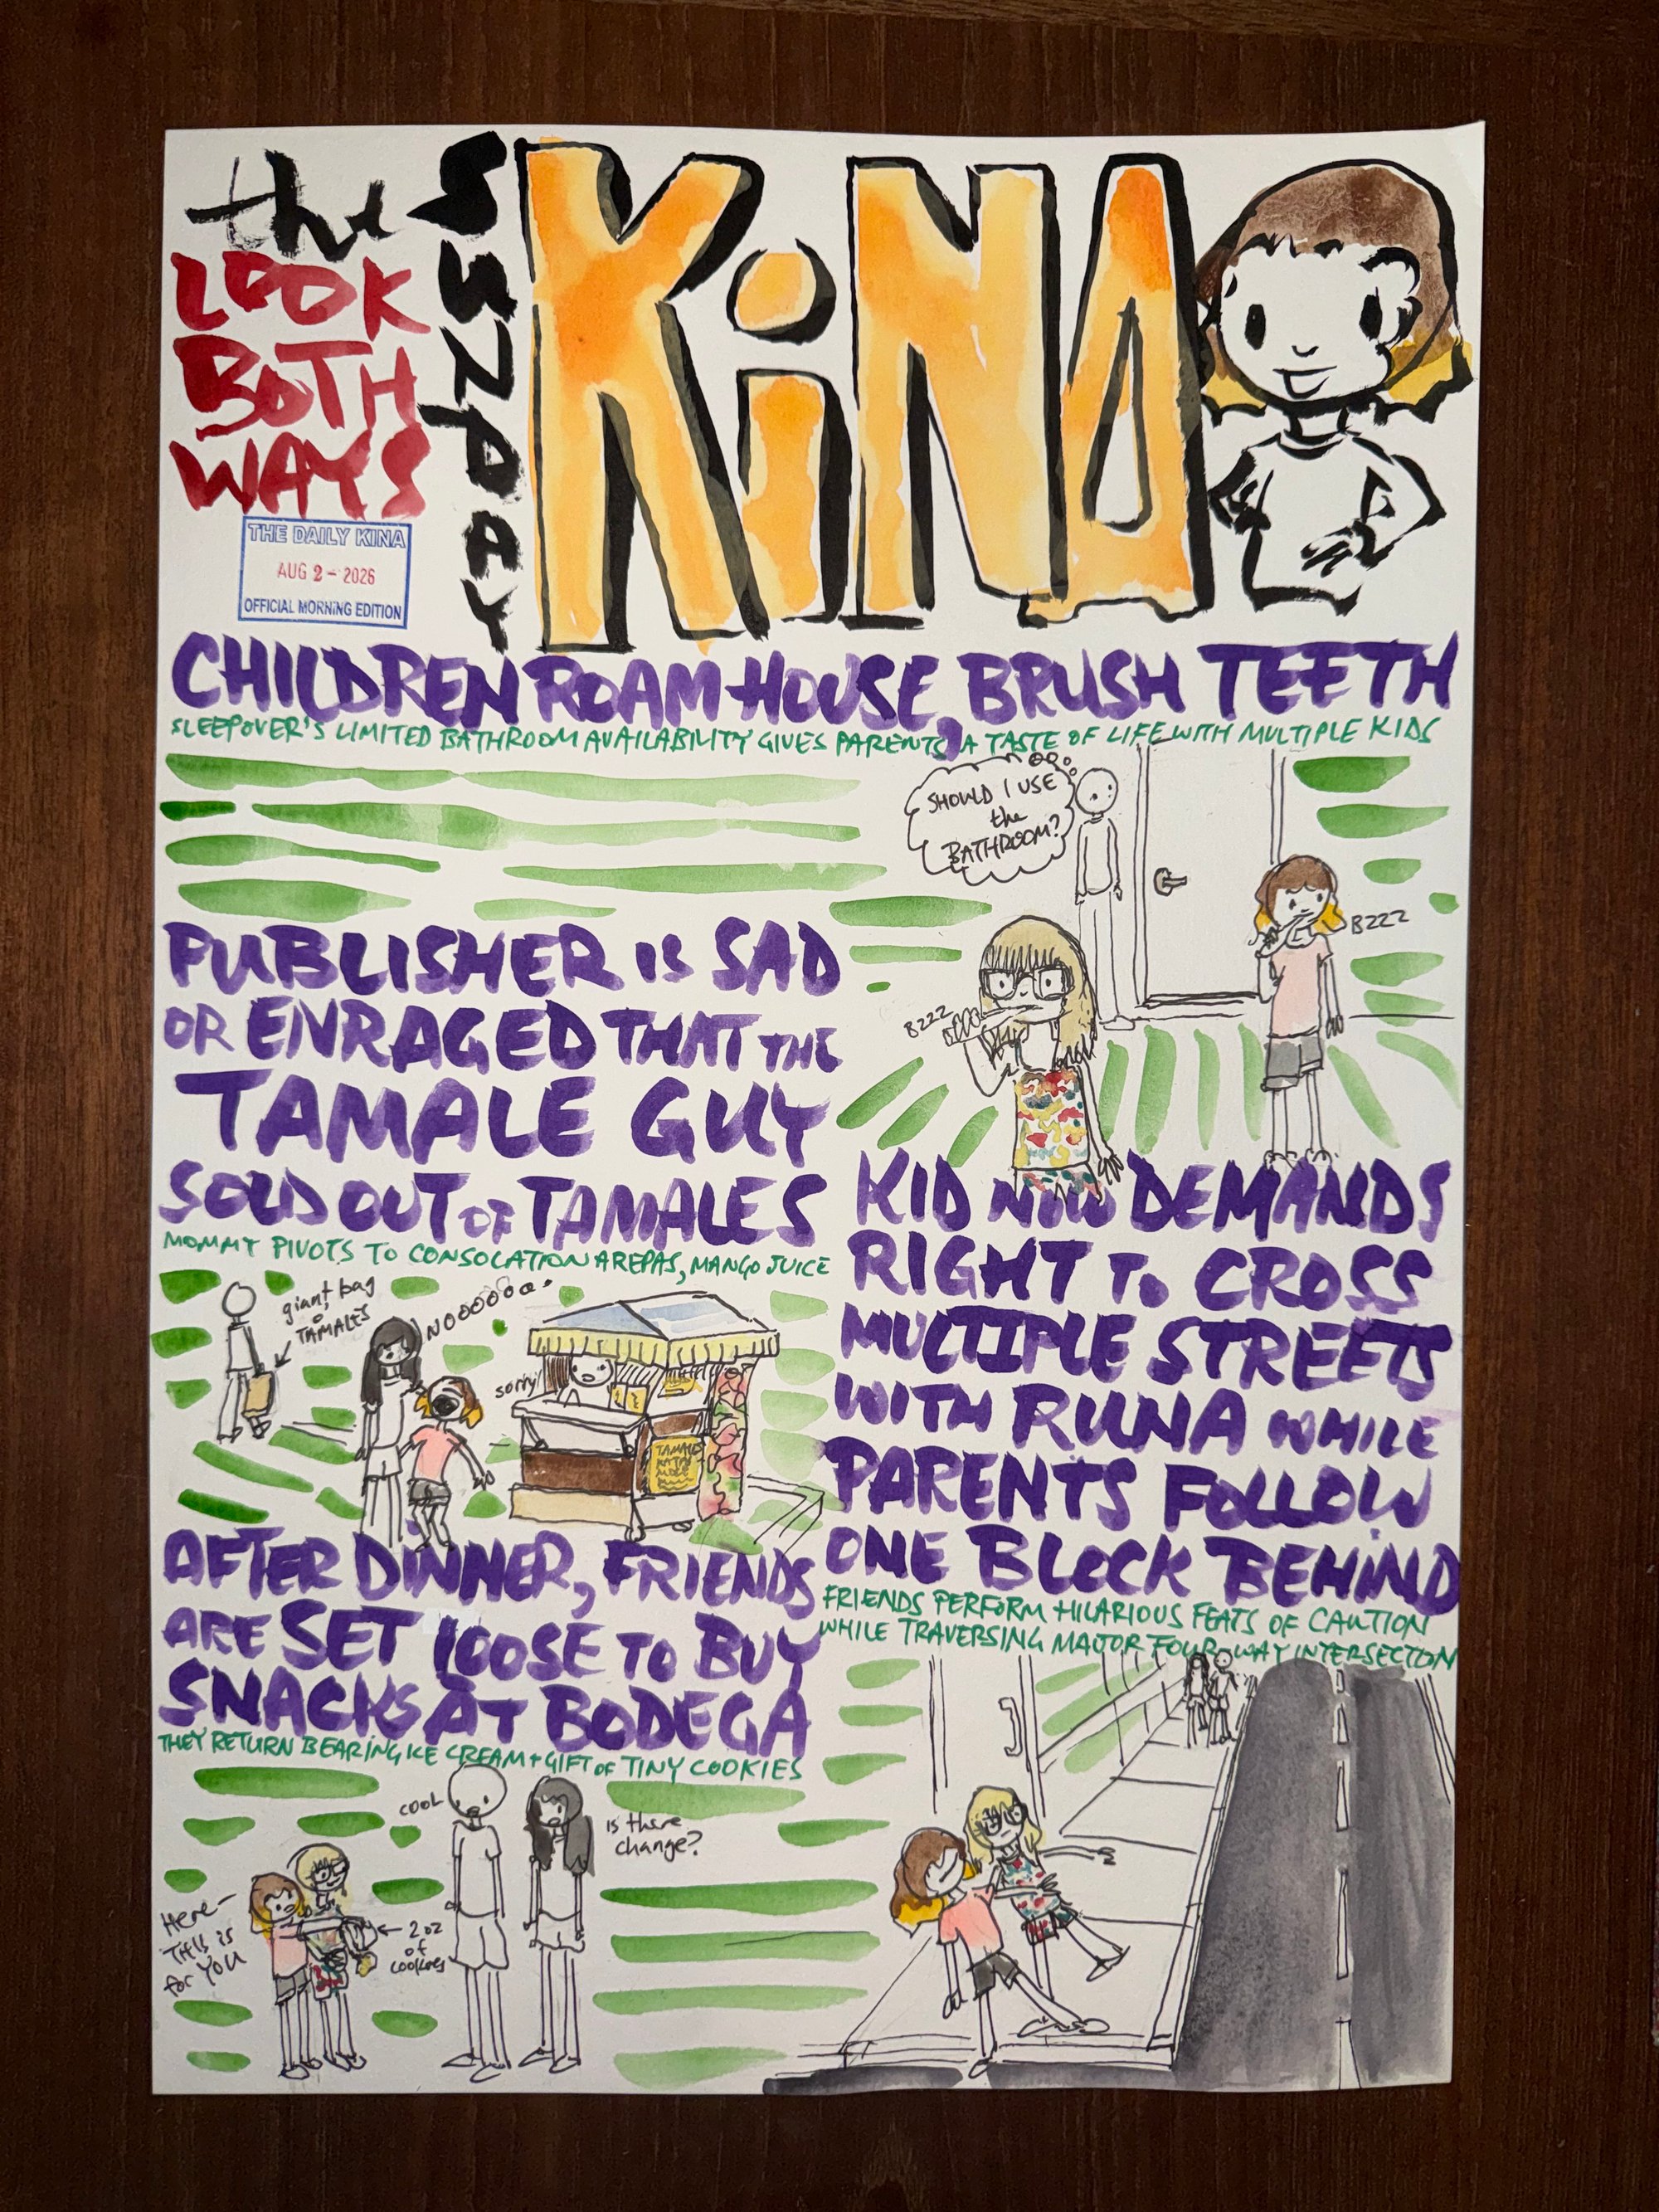 the
LOOK
BOTH
WAYS
SUNDAY
KiNA
THE DAILY KINA
AUG 2 - 2026
OFFICIAL MORNING EDITION
CHILDREN ROAM HOUSE, BRUSH TEETH
SLEEPOVER'S LIMITED BATHROOM AVAILABILITY GIVES PARENTS A TASTE OF LIFE WITH MULTIPLE KIDS
SHOULD I USE
the
BATHROOM?
BZZZ
BZZZ
PUBLISHER IS SAD
OR ENRAGED THAT THE
TAMALE GUY
SOLD OUT OF TAMALES
MOMMY PIVOTS TO CONSOLATION AREPAS, MANGO JUICE
giant bag
of
TAMALES
NOOOOOO
sorry!
TAMALES
KID NOW DEMANDS
RIGHT TO CROSS
MULTIPLE STREETS
WITH RUNA WHILE
PARENTS FOLLOW
ONE BLOCK BEHIND
FRIENDS PERFORM HILARIOUS FEATS OF CAUTION
WHILE TRAVERSING MAJOR FOUR-WAY INTERSECTION
AFTER DINNER, FRIENDS
ARE SET LOOSE TO BUY
SNACKS AT BODEGA
THEY RETURN BEARING ICE CREAM + GIFT OF TINY COOKIES
COOL
is there
change?
Here-
THIS is
for YOU
2 oz
of
cookies